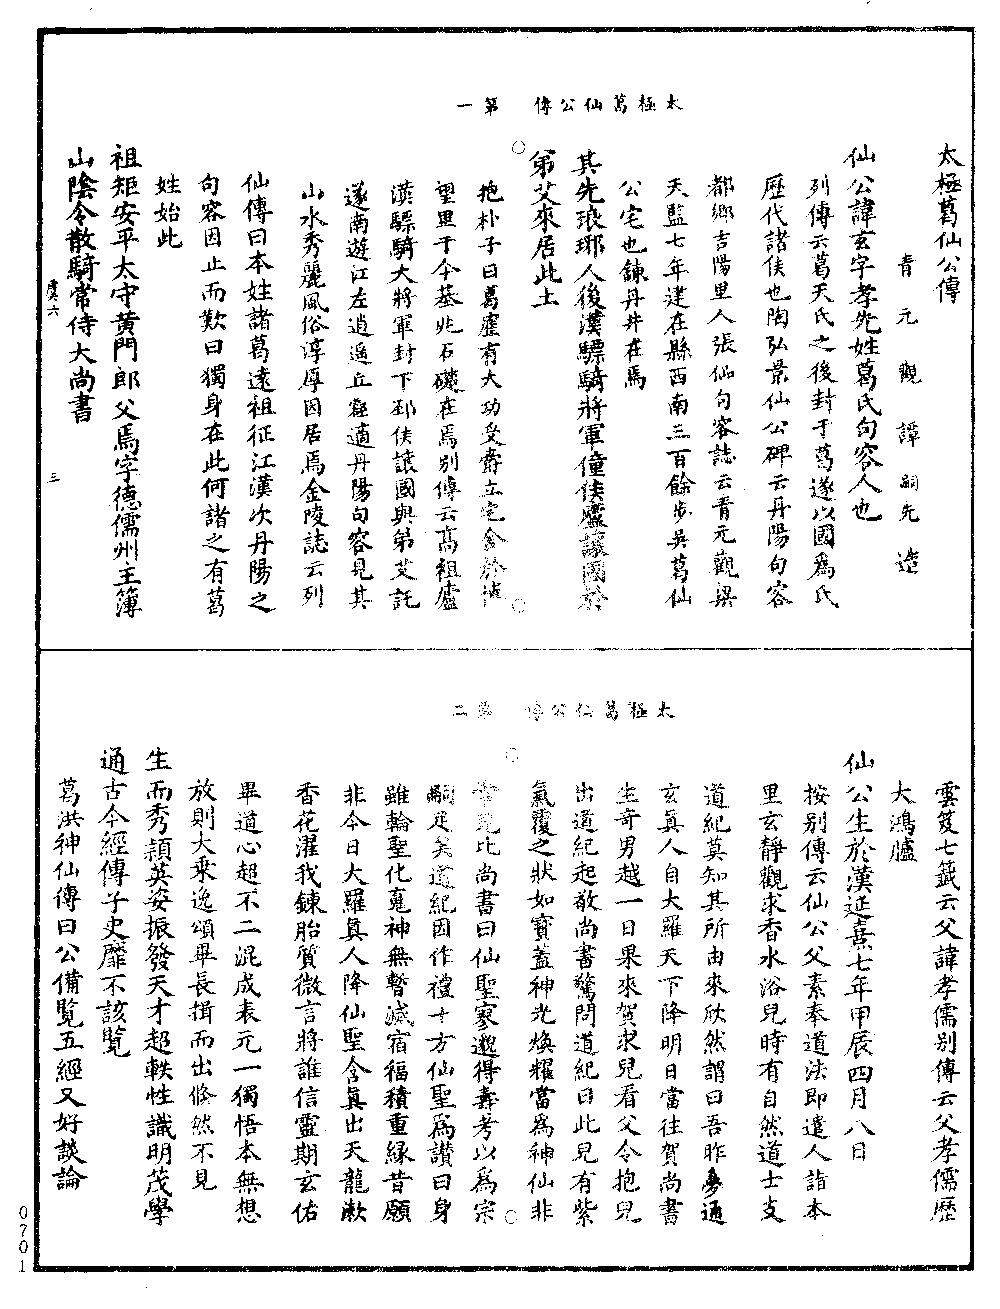 太極葛仙公傳 第一
太極葛仙公傳
青元觀譚嗣先造
仙公諱玄字孝先姓葛氏句容人也
列傳云葛天氏之後封于葛遂以國爲氏
歷代諸侯也陶弘景仙公碑云丹陽句容
都鄉吉陽里人張仙句容誌云青元觀梁
天監七年建在縣西南三百餘步吳葛仙
公宅也鍊丹井在焉
其先琅琊人後漢驃騎將軍僮侯廬讓國於
弟艾來居此土
抱朴子曰葛廬有大功受爵立宅舍於
望里于今基兆石礎在焉別傳云高祖廬
漢驃騎大將軍封下邳侯讓國與弟艾託
遂南遊江左逍遙丘壑適丹陽句容見其
山水秀麗風俗淳厚因居焉金陵誌云列
仙傳曰本姓諸葛遠祖征江漢次丹陽之
句容因止而歎曰獨身在此何諸之有葛
姓始此
祖矩安平太守黃門郎父焉字德儒州主簿
山陰令散騎常侍大尚書
虞六 三
太極葛仙公傳 第二
雲笈七籤云父諱孝儒別傳云父孝儒歷
大鴻臚
仙公生於漢延熹七年甲辰四月八日
按別傳云仙公父素奉道法即遣人詣本
里玄靜觀求香水浴兒時有自然道士支
道紀莫知其所由來欣然謂曰吾昨夢通
玄真人自大羅天下降明日當往賀尚書
生奇男越一日果來賀求兒看父令抱兒
出道紀起敬尚書驚問道紀曰此兒有紫
氣覆之狀如寶蓋神光煥耀當爲神仙非
常兒比尚書曰仙聖寥邈得壽考以爲宗
嗣足矣道紀因作禮十方仙聖爲讚曰身
雖輪聖化寬神無暫滅宿福積重緣昔願
非今日大羅真人降仙聖含真出天龍漱
香花濯我鍊胎質微言將誰信靈期玄佑
畢道心超不二混成表元一獨悟本無想
放則大乘逸頌畢長揖而出倏然不見
生而秀穎英姿振發天才超軼性識明茂學
通古今經傳子史靡不該覽
葛洪神仙傳曰公備覽五經又好談論
0701